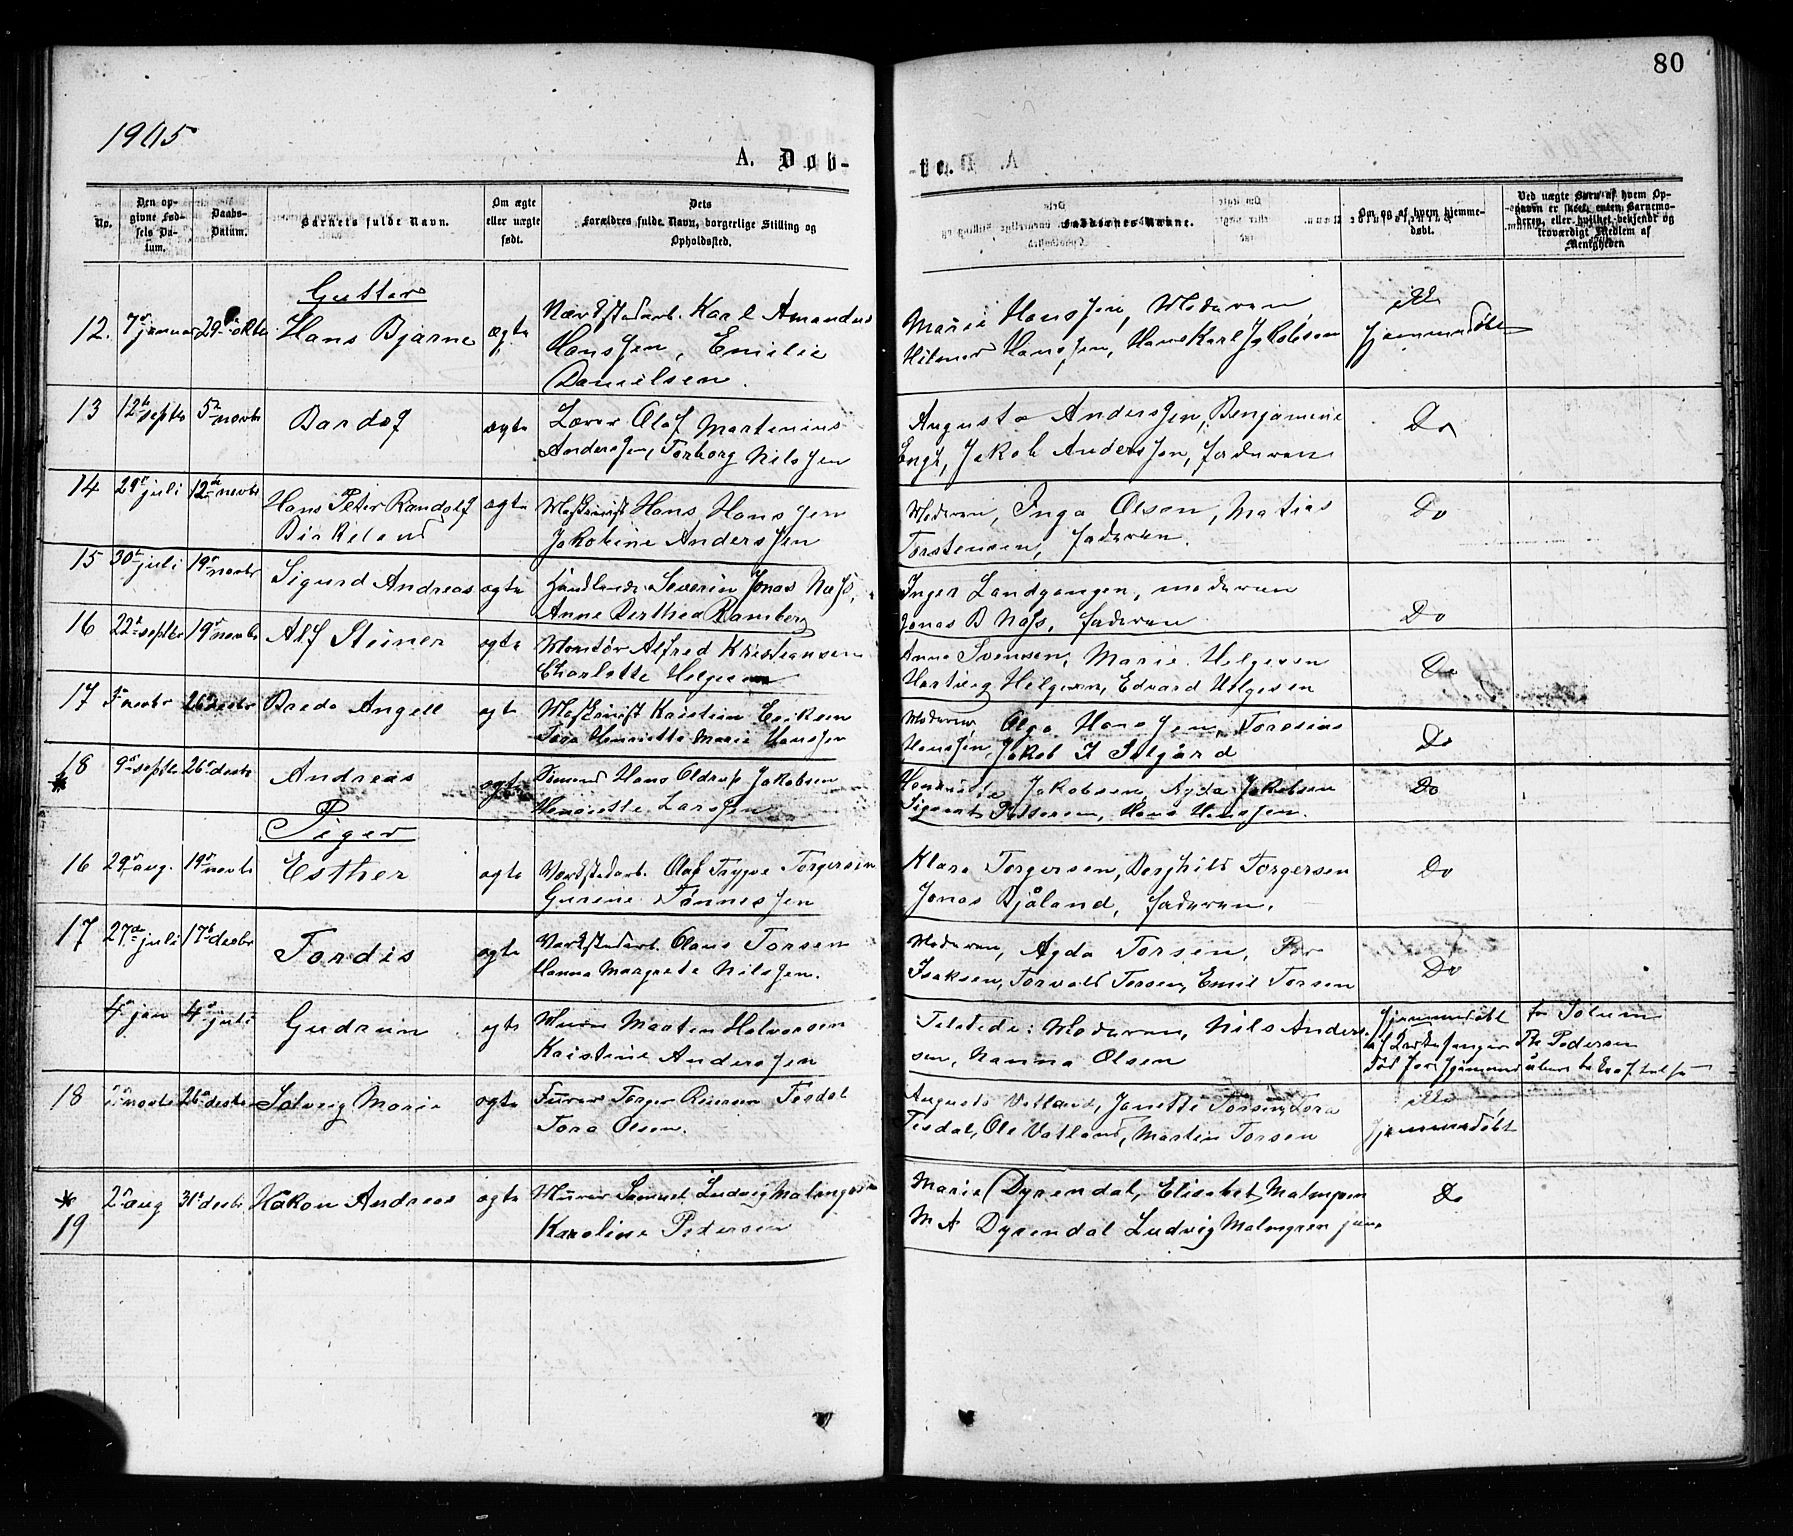 80
1905
A. Døb-
te.
No.
Den op-
givne Fød-
sels Da-
tum.
Daabs-
Datum.
Barnets fulde Navn.
Om ægte
eller uægte
født.
Dets
Forældres fulde Navn, borgerlige Stilling og
Opholdssted.
Faddernes Navne.
Om og af hvem hjemme-
døbt.
Ved uægte Børn af hvem Op-
gaven er skeet, enten Barnemo-
deren, eller hvilket bekjendt og
troværdigt Medlem af
Menigheden
Gutter
12. 7 januar 29 oktbr Hans Bjarne ægte Værkstedarb. Karl Amandus
Hanssen, Emilie
Danielsen.
Marie Hanssen, Moderen
Hilmar Hanssen, Hans Karl Jakobsen
ikke
hjemmedøbt
13 12 septbr 5 novbr Bardof ægte Lærer Olaf Martinius
Anderssen, Torborg Nilssen
Augusta Anderssen, Benjamine
Enge, Jakob Anderssen, faderen
Do
14 29 juli 12 novbr Hans Peter Randolf
Birkeland
ægte Maskinist Hans Hanssen
Jakobine Anderssen
Moderen, Inga Olsen, Matias
Torstensen, faderen.
Do
15 30 juli 19 novbr Sigurd Andreas ægte Handlande Severin Jonas Næss,
Anne Berthea Ramberg
Inger Landgangen, moderen
Jonas B Næss, faderen
Do
16 22 septbr 19 novbr Alf Steiner ægte Montør Alfred Kristiansen
Charlotte Helgesen
Anna Svensen, Marie Helgesen
Hartvig Helgesen, Edvard Helgesen
Do
17 novbr 26 decbr Breda Angell ægte Maskinist Kristian Eriksen
Tora Henriette Marie Hanssen
Moderen Olga Hanssen, Toresius
Hanssen, Jakob I Selgård
Do
18 9 septbr 26 decbr Andreas ægte Sømand Hans Oldrup Jakobsen
Henriette Larssen
Henriette Jakobsen, Agda Jakobsen
Sigvart Pettersen, Hans Hanssen.
Do
Piger
16 29 aug. 19 novbr Esther ægte Værkstedarb. Olaf Trygve Torgersen
Gurine Tønnessen
Klara Torgersen, Borghild Torgersen
Jonas Bjåland, faderen.
Do
17 27 juli 17 decbr Tordis ægte Værkstedarb. Olaus Torsen
Hanna Margrete Nilssen.
Moderen, Agda Torsen, Per
Isaksen, Torvald Torsen, Emil Torsen
Do
4 jan 4 juli Gudrun ægte Murer Morten Halvorsen
Kristine Anderssen
Tilstede: Moderen, Nils Anders-
sen, Hanna Olsen
hjemmedøbt
af
for Solum
Th Pedersen
18 novbr 26 decbr Solveig Marie ægte Furer Torger Reiersen Tesdal
Tora Olsen.
Augusta Vatland, Janette Torsen, Tora
Tesdal, Ole Vatland, Martin Torsen
ikke
hjemmedøbt
19 2 aug 31 decbr Håkon Andreas ægte Murer Samuel Ludvig Malmgren
Karoline Petersen
Marie Dyrendal, Elisabet Malmgren
M A Dyrendal Ludvig Malmgren jun.
Do